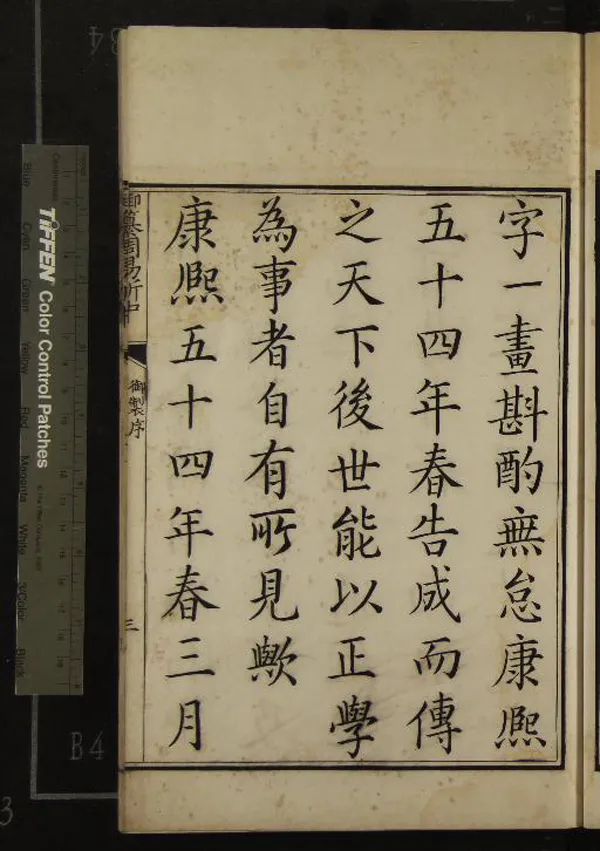 字一畫斟酌無怠康熙
五十四年春告成而傳
之天下後世能以正學
為事者自有所見歟
康熙五十四年春三月
御纂周易折中
御製序
三
TIFFEN Color Control Patches
Blue
Cyan
Green
Yellow
Red
Magenta
White
3/Color
Black
B4
B4
3